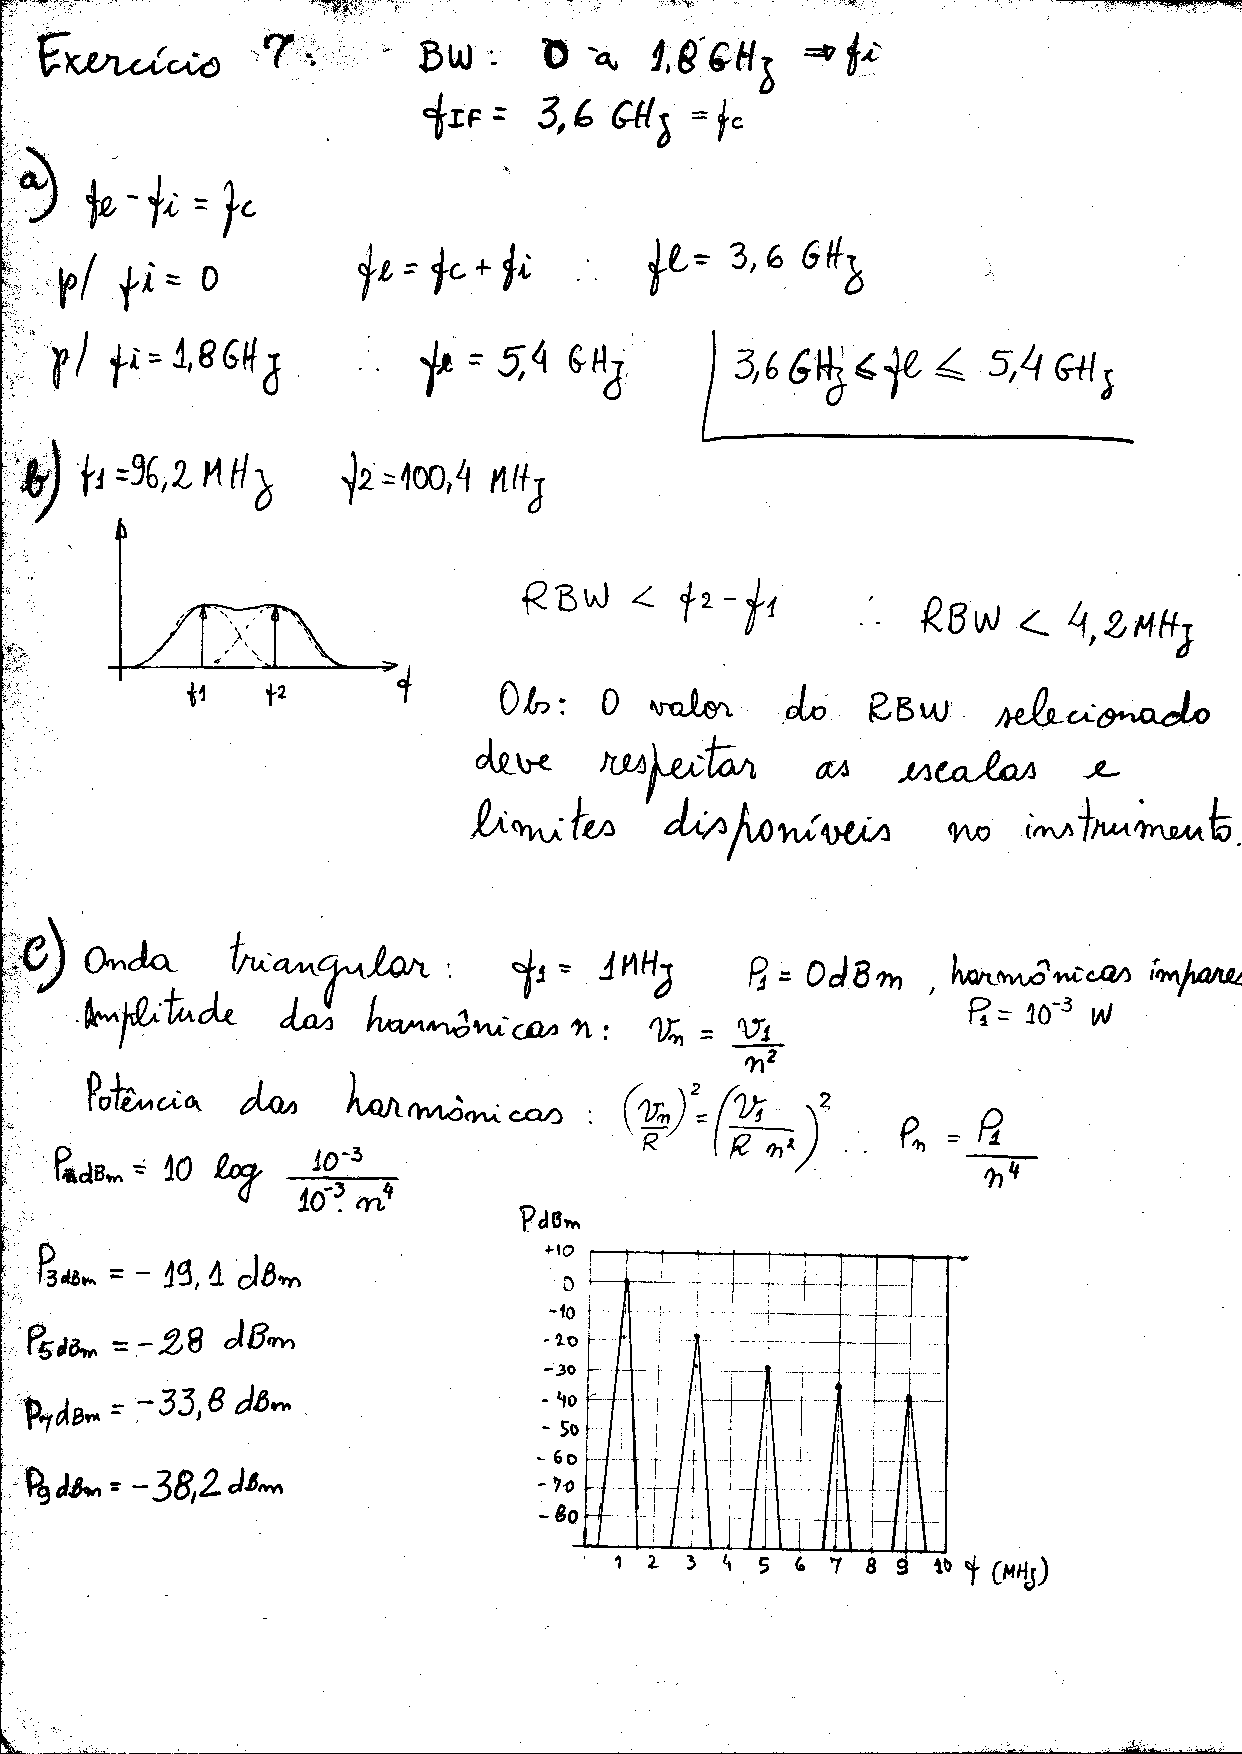 Exercício 7: BW: 0 a 1,8 GHz ⇒ fi
fIF = 3,6 GHz = fc
a) fl - fi = fc
p/ fi = 0 fl = fc + fi ∴ fl = 3,6 GHz
p/ fi = 1,8 GHz ∴ fl = 5,4 GHz 3,6 GHz ≤ fl ≤ 5,4 GHz
b) f1 = 96,2 MHz f2 = 100,4 MHz
RBW < f2 - f1 ∴ RBW < 4,2 MHz
f1 f2 f
Obs: O valor do RBW selecionado
deve respeitar as escalas e
limites disponíveis no instrumento.
c) Onda triangular: f1 = 1 MHz P1 = 0 dBm, harmônicas ímpares
P1 = 10^-3 W
Amplitude das harmônicas n: Vn = V1/n^2
Potência das harmônicas: (Vn/R)^2 = (V1/(R n^2))^2 ∴ Pn = P1/n^4
PndBm = 10 log 10^-3/(10^-3 . n^4)
P3dBm = - 19,1 dBm
P5dBm = - 28 dBm
P7dBm = - 33,8 dBm
P9dBm = - 38,2 dBm
PdBm
+10
0
-10
-20
-30
-40
-50
-60
-70
-80
1 2 3 4 5 6 7 8 9 10 f (MHz)